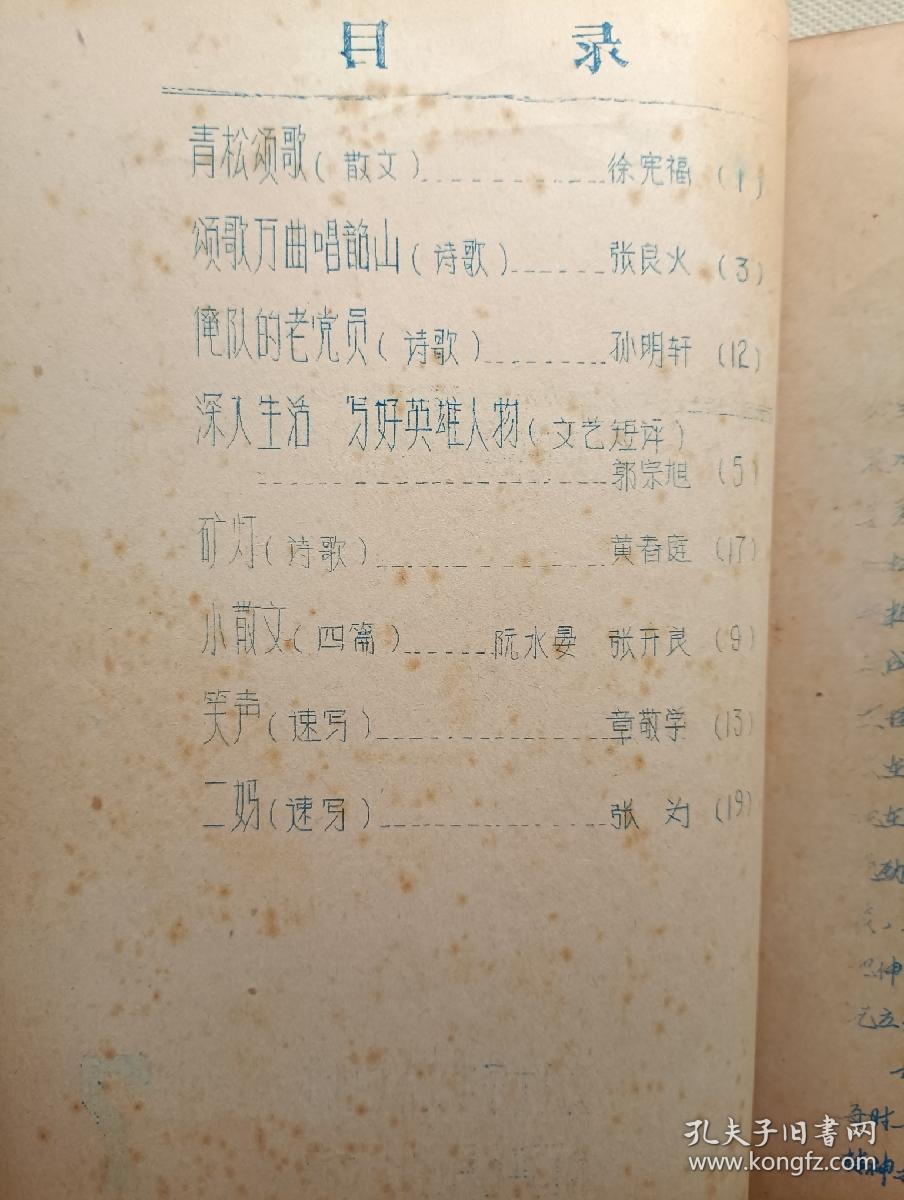 目 录
青松颂歌(散文)------徐宪福 (1)
颂歌万曲唱韶山(诗歌)------张良火 (3)
俺队的老党员(诗歌)------孙明轩 (12)
深入生活 写好英雄人物(文艺短评)
------郭宗旭 (5)
矿灯(诗歌)------黄春庭 (17)
小散文(四篇)------阮水晏 张开良 (9)
笑声(速写)------章敬学 (13)
二妈(速写)------张为 (19)
孔夫子旧书网
www.kongfz.com